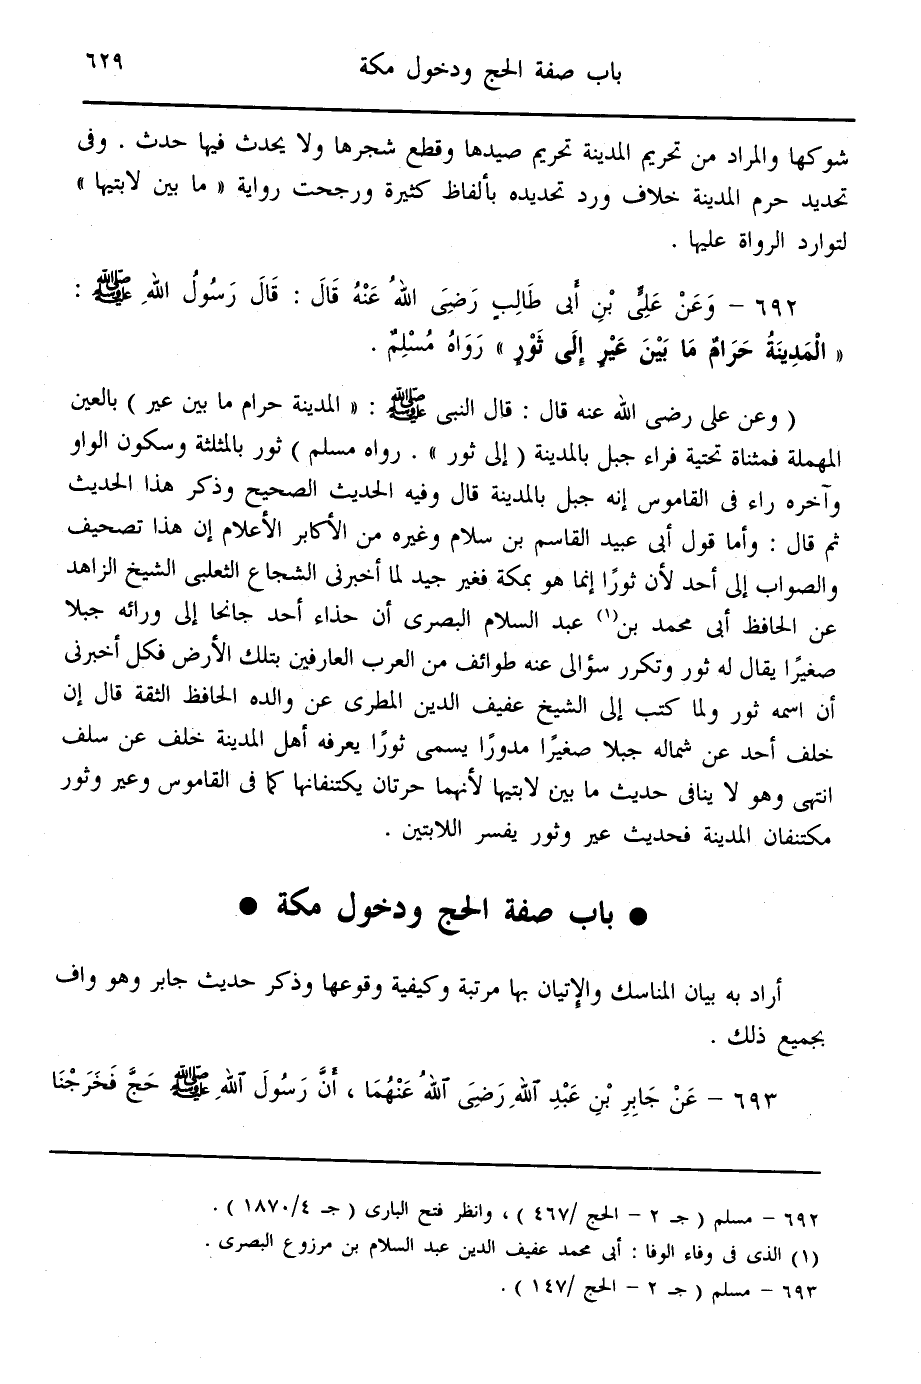 باب صفة الحج ودخول مكة ٦٢٩
شوكها والمراد من تحريم المدينة تحريم صيدها وقطع شجرها ولا يحدث فيها حدث . وفى
تحديد حرم المدينة خلاف ورد تحديده بألفاظ كثيرة ورجحت رواية « ما بين لابتيها »
لتوارد الرواة عليها .
٦٩٢ – وَعَنْ عَلِىِّ بْنِ أَبى طَالِبٍ رَضِىَ اللهُ عَنْهُ قَالَ : قَالَ رَسُولُ اللهِ ﷺ :
« الْمَدِينَةُ حَرَامٌ مَا بَيْنَ عَيْرٍ إِلَى ثَوْرٍ » رَوَاهُ مُسْلِمٌ .
( وعن على رضى الله عنه قال : قال النبى ﷺ : « المدينة حرام ما بين عير ) بالعين
المهملة فمثناة تحتية فراء جبل بالمدينة ( إلى ثور » . رواه مسلم ) ثور بالمثلثة وسكون الواو
وآخره راء فى القاموس إنه جبل بالمدينة قال وفيه الحديث الصحيح وذكر هذا الحديث
ثم قال : وأما قول أبى عبيد القاسم بن سلام وغيره من الأكابر الأعلام إن هذا تصحيف
والصواب إلى أحد لأن ثورًا إنما هو بمكة فغير جيد لما أخبرنى الشجاع الثعلبى الشيخ الزاهد
عن الحافظ أبى محمد بن(١) عبد السلام البصرى أن حذاء أحد جانحا إلى ورائه جبلا
صغيرًا يقال له ثور وتكرر سؤالى عنه طوائف من العرب العارفين بتلك الأرض فكل أخبرنى
أن اسمه ثور ولما كتب إلى الشيخ عفيف الدين المطرى عن والده الحافظ الثقة قال إن
خلف أحد عن شماله جبلا صغيرًا مدورًا يسمى ثورًا يعرفه أهل المدينة خلف عن سلف
انتهى وهو لا ينافى حديث ما بين لابتيها لأنهما حرتان يكتنفانها كما فى القاموس وعير وثور
مكتنفان المدينة فحديث عير وثور يفسر اللابتين .
● باب صفة الحج ودخول مكة ●
أراد به بيان المناسك والإتيان بها مرتبة وكيفية وقوعها وذكر حديث جابر وهو واف
بجميع ذلك .
٦٩٣ – عَنْ جَابِرِ بْنِ عَبْدِ ٱللهِ رَضِىَ ٱللهُ عَنْهُمَا ، أَنَّ رَسُولَ ٱللهِ ﷺ حَجَّ فَخَرَجْنَا
٦٩٢ – مسلم ( جـ ٢ – الحج /٤٦٧ ) ، وانظر فتح البارى ( جـ ١٨٧٠/٤ ) .
(١) الذى فى وفاء الوفا : أبى محمد عفيف الدين عبد السلام بن مرزوع البصرى .
٦٩٣ – مسلم ( جـ ٢ – الحج /١٤٧ ) .